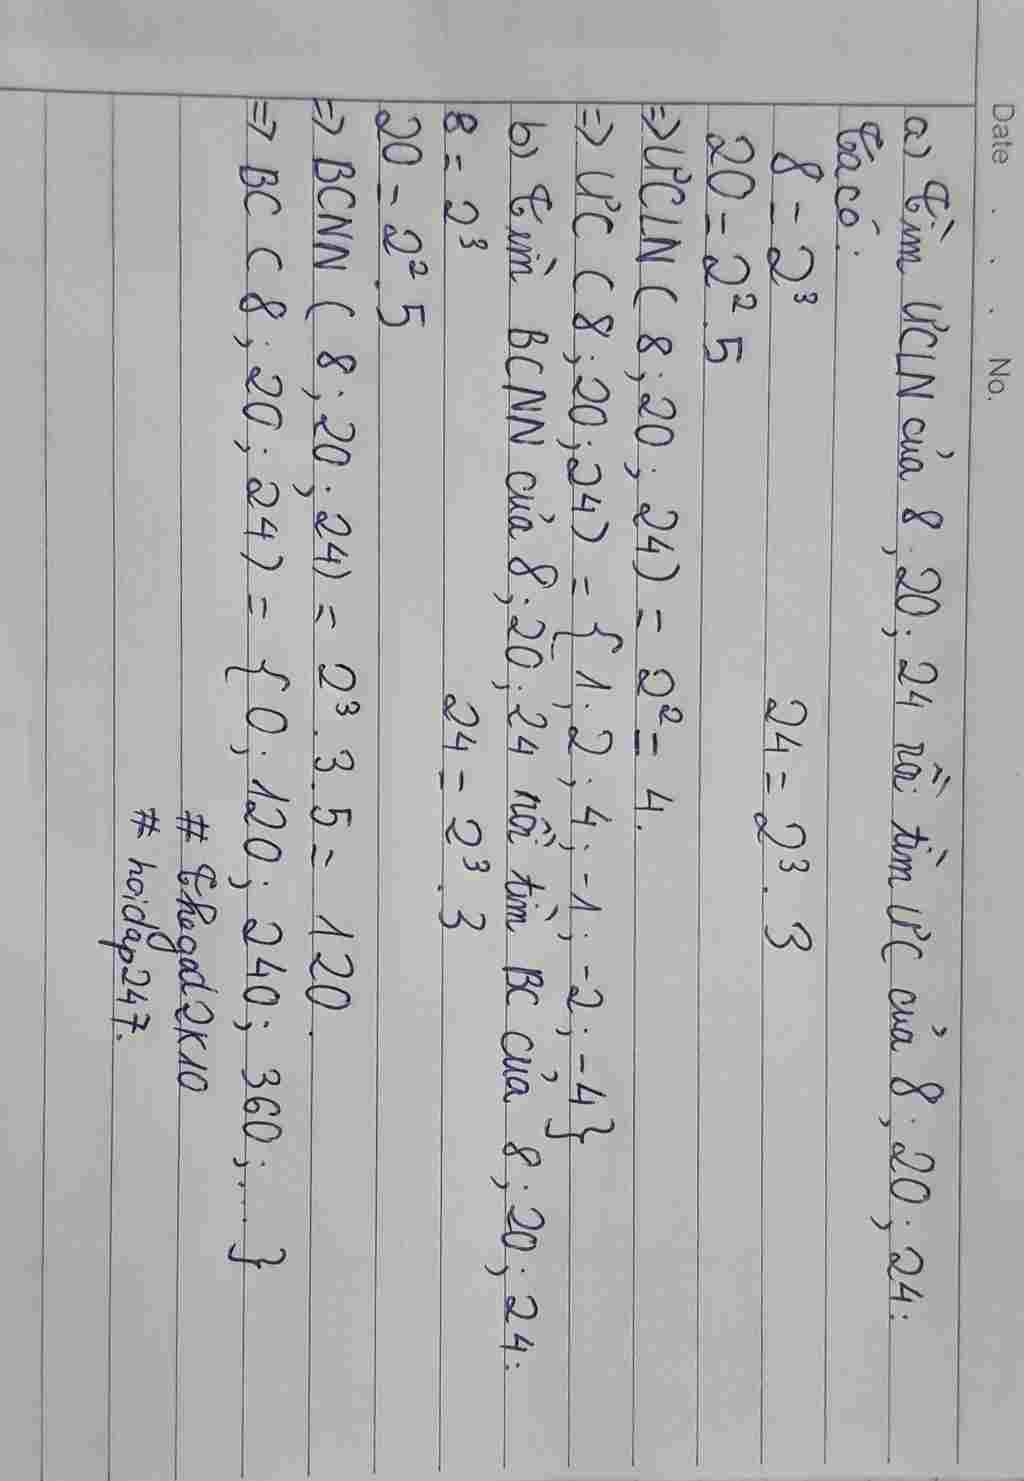 Date . . . No.
a) Tìm ƯCLN của 8; 20; 24 rồi tìm ƯC của 8; 20; 24:
Ta có:
8 = 2³ 24 = 2³ . 3
20 = 2² . 5
=> ƯCLN ( 8; 20; 24) = 2² = 4.
=> ƯC ( 8; 20; 24) = { 1; 2; 4; -1; -2; -4}
b) Tìm BCNN của 8; 20; 24 rồi tìm BC của 8; 20; 24:
8 = 2³ 24 = 2³ . 3
20 = 2² . 5
=> BCNN ( 8; 20; 24) = 2³ . 3 . 5 = 120.
=> BC ( 8; 20; 24) = { 0; 120; 240; 360; ... }
# thegad2k10
# hoidap247.